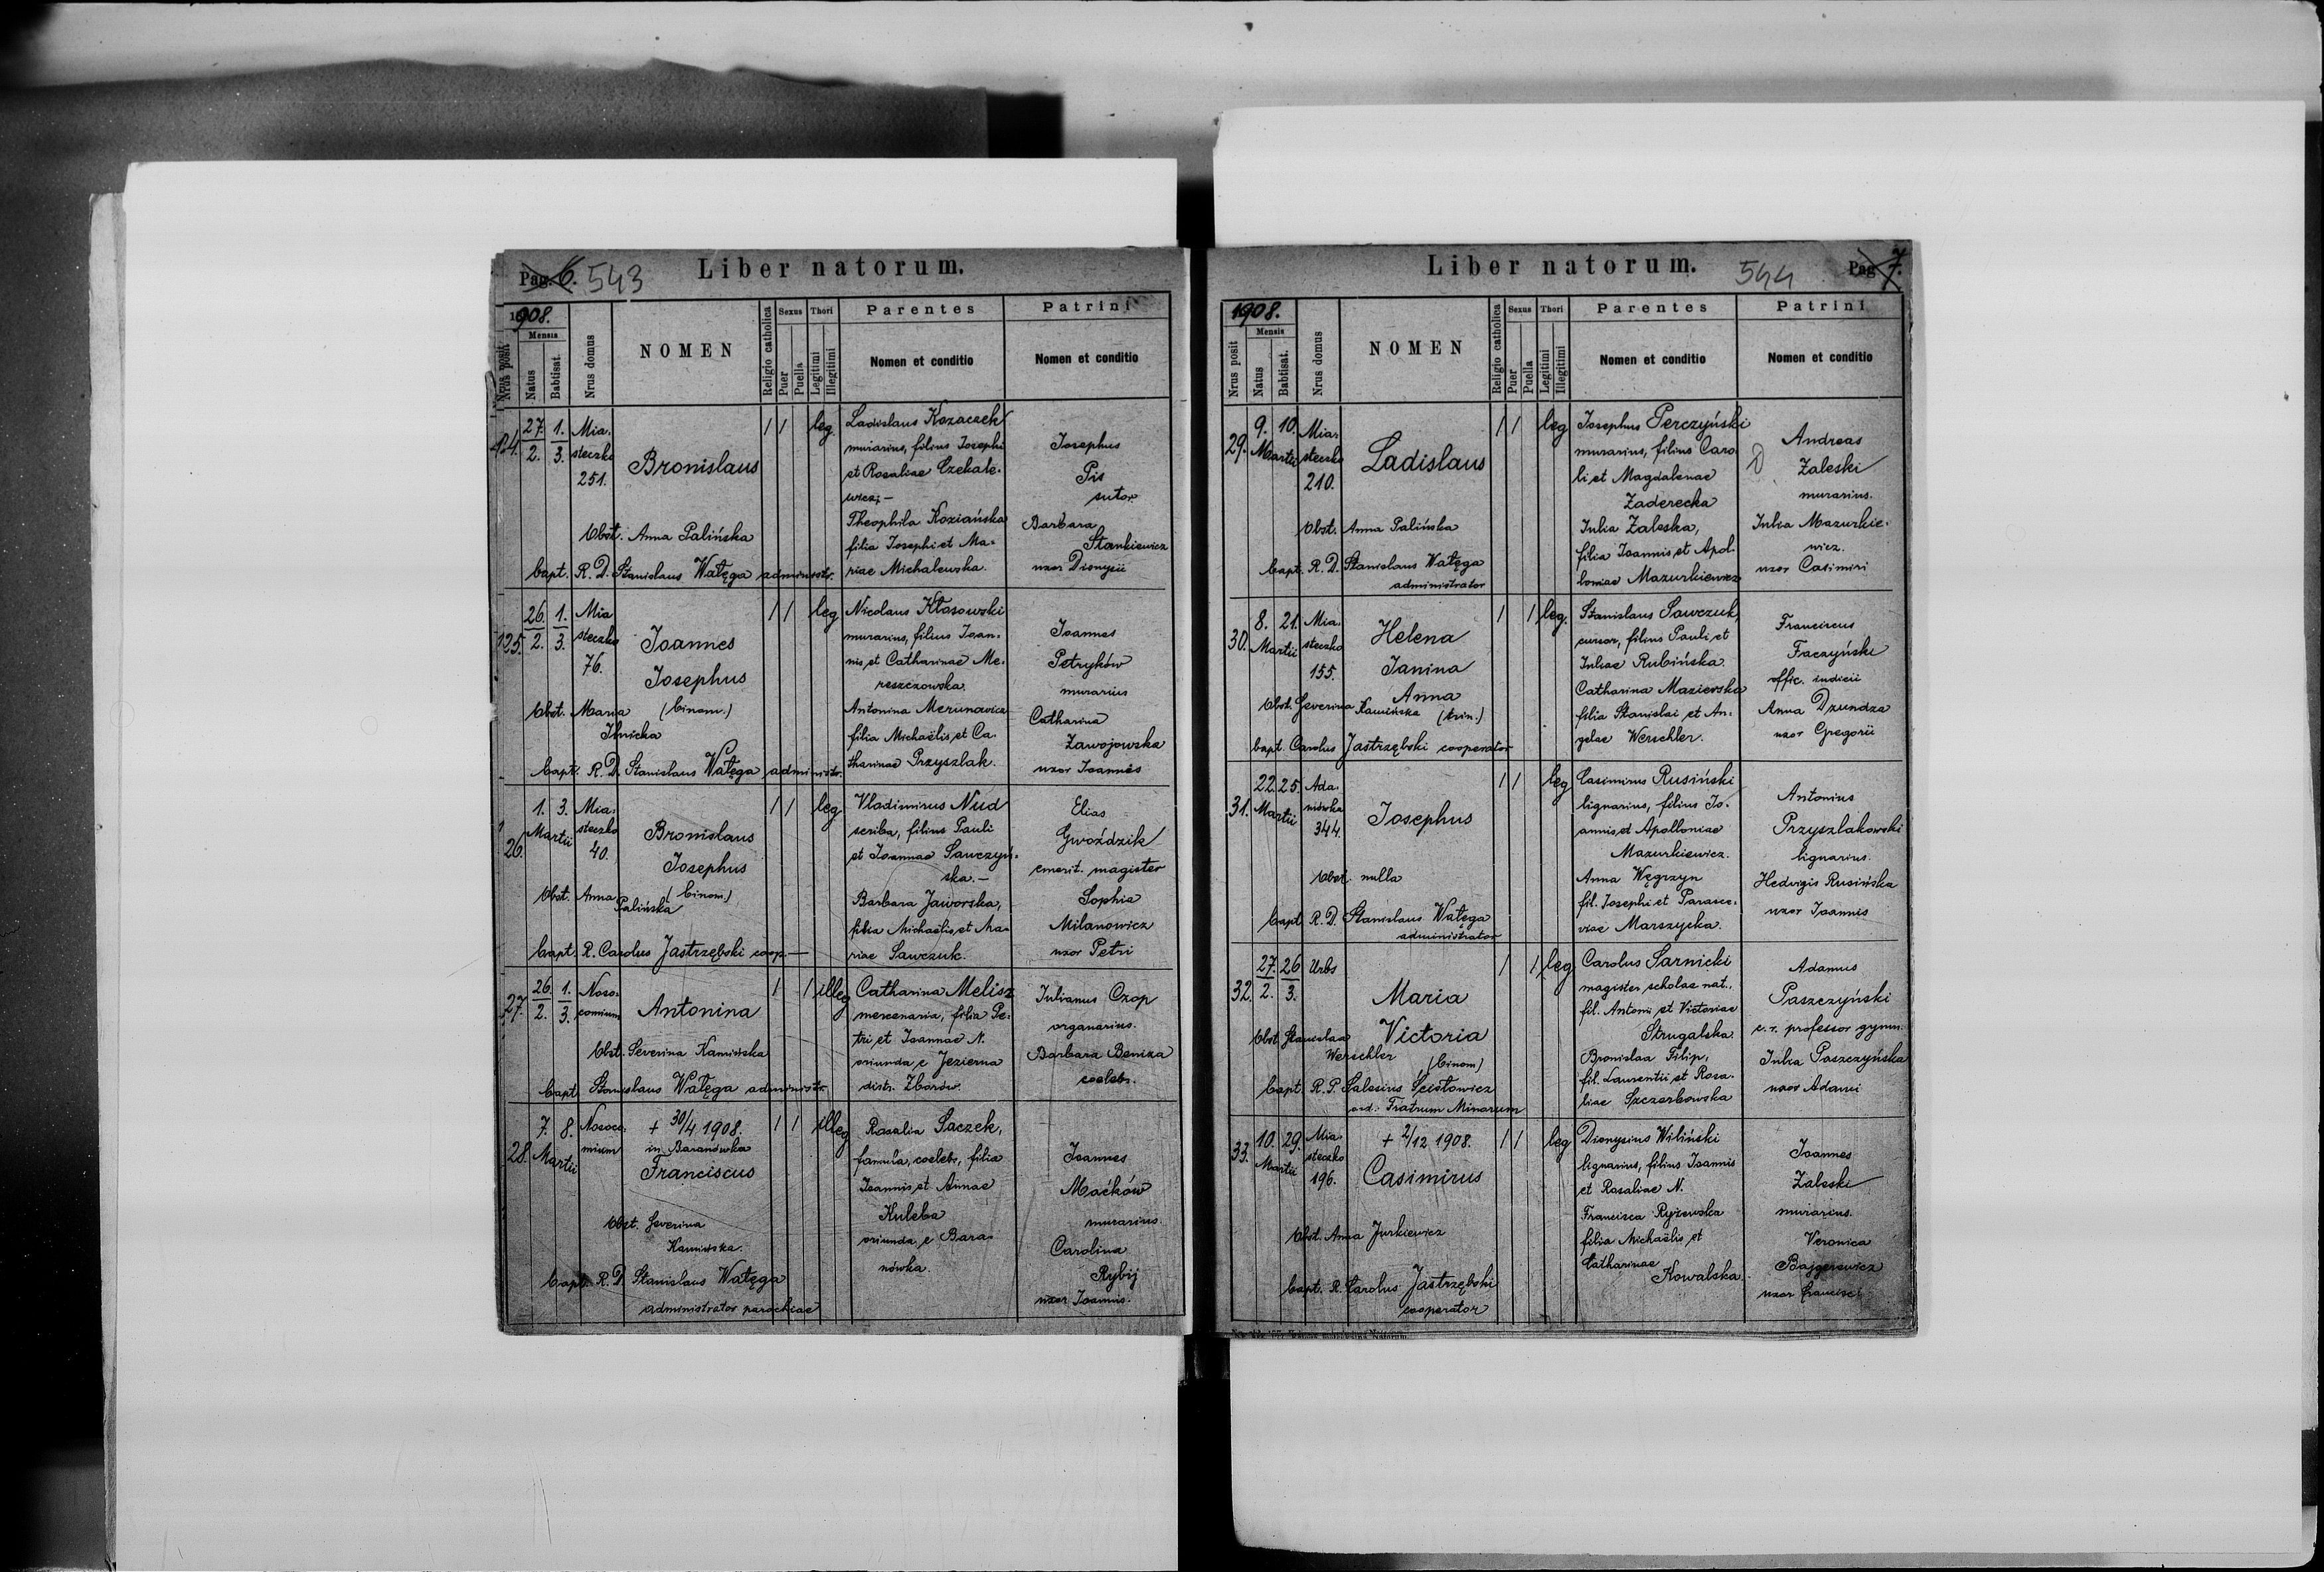 Pag. 6. 543
Liber natorum.
1908.
Nrus posit
Mensis
Natus
Babtisat.
Nrus domus
NOMEN
Religio catholica
Sexus
Puer
Puella
Thori
Legitimi
Illegitimi
Parentes
Nomen et conditio
Patrini
Nomen et conditio
24.
27. 1.
2. 3.
Mia-
steczko
251.
Bronislaus
Obst. Anna Palińska
bapt. R. D. Stanislaus Watęga administr.
1 1 leg
Ladislaus Kozaczek
murarius, filius Josephi
et Rosaliae Czekale-
wicz; -
Theophila Koziańska
filia Josephi et Ma-
riae Michalewska.
Josephus
Pis
sutor
Barbara
Stankiewicz
uxor Dionysii
125.
26. 1.
2. 3.
Mia
steczko
76.
Joannes
Josephus
(binom.)
Obst. Maria
Ilnicka
bapt. R. D. Stanislaus Watęga administr.
1 1 leg
Nicolaus Kłasowski
murarius, filius Joan-
nis, et Catharinae Me-
reszczowska.
Antonina Merunowicz
filia Michaëlis, et Ca-
tharinae Przyszlak.
Joannes
Petryków
murarius
Catharina
Zawojowska
uxor Joannis
26.
1. 3.
Martii
Mia-
steczko
40.
Bronislaus
Josephus
(binom.)
Obst. Anna
Palińska
bapt. R. Carolus Jastrzębski coop. —
1 1 leg
Vladimirus Nud
scriba, filius Pauli
et Joannae Sawczyń-
ska. -
Barbara Jaworska,
filia Michaëlis, et Ma-
riae Sawczuk.
Elias
Gwoździk
emerit. magister
Sophia
Milanowicz
uxor Petri
27.
26. 1.
2. 3.
Noso-
comium
Antonina
Obst. Severina Kamińska
bapt. Stanislaus Watęga administr.
1 1 illeg
Catharina Melisz
mercenaria, filia Pe-
tri et Joannae N.
oriunda e Jezierna
distr. Zborów.
Julianus Czop
organarius.
Barbara Beniza
coelebs.
28.
7. 8.
Martii
Nosoco-
mium
+ 30/4 1908.
in Baranówka
Franciscus
Obst. Severina
Kamińska.
bapt. R. D. Stanislaus Watęga
administrator parochiae
1 1 illeg
Rosalia Saczek,
famula, coelebs, filia
Joannis, et Annae
Kuleba
oriunda e Bara-
nówka.
Joannes
Maćków
murarius.
Carolina
Rybij
uxor Joannis.
Liber natorum.
544
Pag 7.
1908.
Nrus posit
Mensis
Natus
Babtisat.
Nrus domus
NOMEN
Religio catholica
Sexus
Puer
Puella
Thori
Legitimi
Illegitimi
Parentes
Nomen et conditio
Patrini
Nomen et conditio
29.
9. 10.
Martii
Mia-
steczko
210.
Ladislaus
Obst. Anna Palińska
bapt. R. D. Stanislaus Watęga
administrator
1 1 leg
Josephus Perczyński
murarius, filius Caro-
li, et Magdalenae
Zaderecka
Julia Zaleska,
filia Joannis, et Apol-
loniae Mazurkiewicz
Andreas
Zaleski
murarius.
Julia Mazurkie-
wicz.
uxor Casimiri
30.
8. 21.
Martii
Mia-
steczko
155.
Helena
Janina
Anna
(trin.)
Obst. Severina Kamińska
bapt. Carolus Jastrzębski cooperator
1 1 leg.
Stanislaus Sawczuk,
cursor, filius Pauli, et
Juliae Rubińska.
Catharina Maziewska
filia Stanislai et An-
gelae Werschler.
Franciscus
Faczyński
offic. iudicii
Anna Dzundza
uxor Gregorii
31.
22. 25.
Martii
Ada-
mówka
344.
Josephus
Obst. nulla
bapt R. D. Stanislaus Watęga
administrator
1 1 leg
Casimirus Rusiński
lignarius, filius Jo-
annis, et Apolloniae
Mazurkiewicz.
Anna Węgrzyn
fil. Josephi et Parasce-
viae Marszycka.
Antonius
Przyszlakowski
lignarius.
Hedvigis Rusińska
uxor Joannis
32.
27. 26
2. 3.
Urbs
Maria
Victoria
(binom)
Obst Stanislaa
Werschler
bapt R. P. Salesius Ścistowicz
ord. Fratrum Minorum
1 1 leg
Carolus Sarnicki
magister scholae nat.,
fil. Antonii et Victoriae
Strugalska.
Bronislaa Filip,
fil. Laurentii, et Rosa-
liae Szczerbowska
Adamus
Paszczyński
c. r. professor gymn.
Julia Paszczyńska
uxor Adami
33.
10. 29.
Martii
Mia-
steczko
196.
+ 2/12 1908.
Casimirus
Obst. Anna Jurkiewicz
bapt. R. Carolus Jastrzębski
cooperator
1 1 leg
Dionysius Wiliński
lignarius, filius Joannis
et Rosaliae N.
Francisca Ryżewska
filia Michaëlis, et
Catharinae
Kowalska.
Joannes
Zaleski
murarius.
Veronica
Bajgerowicz
uxor Francisci